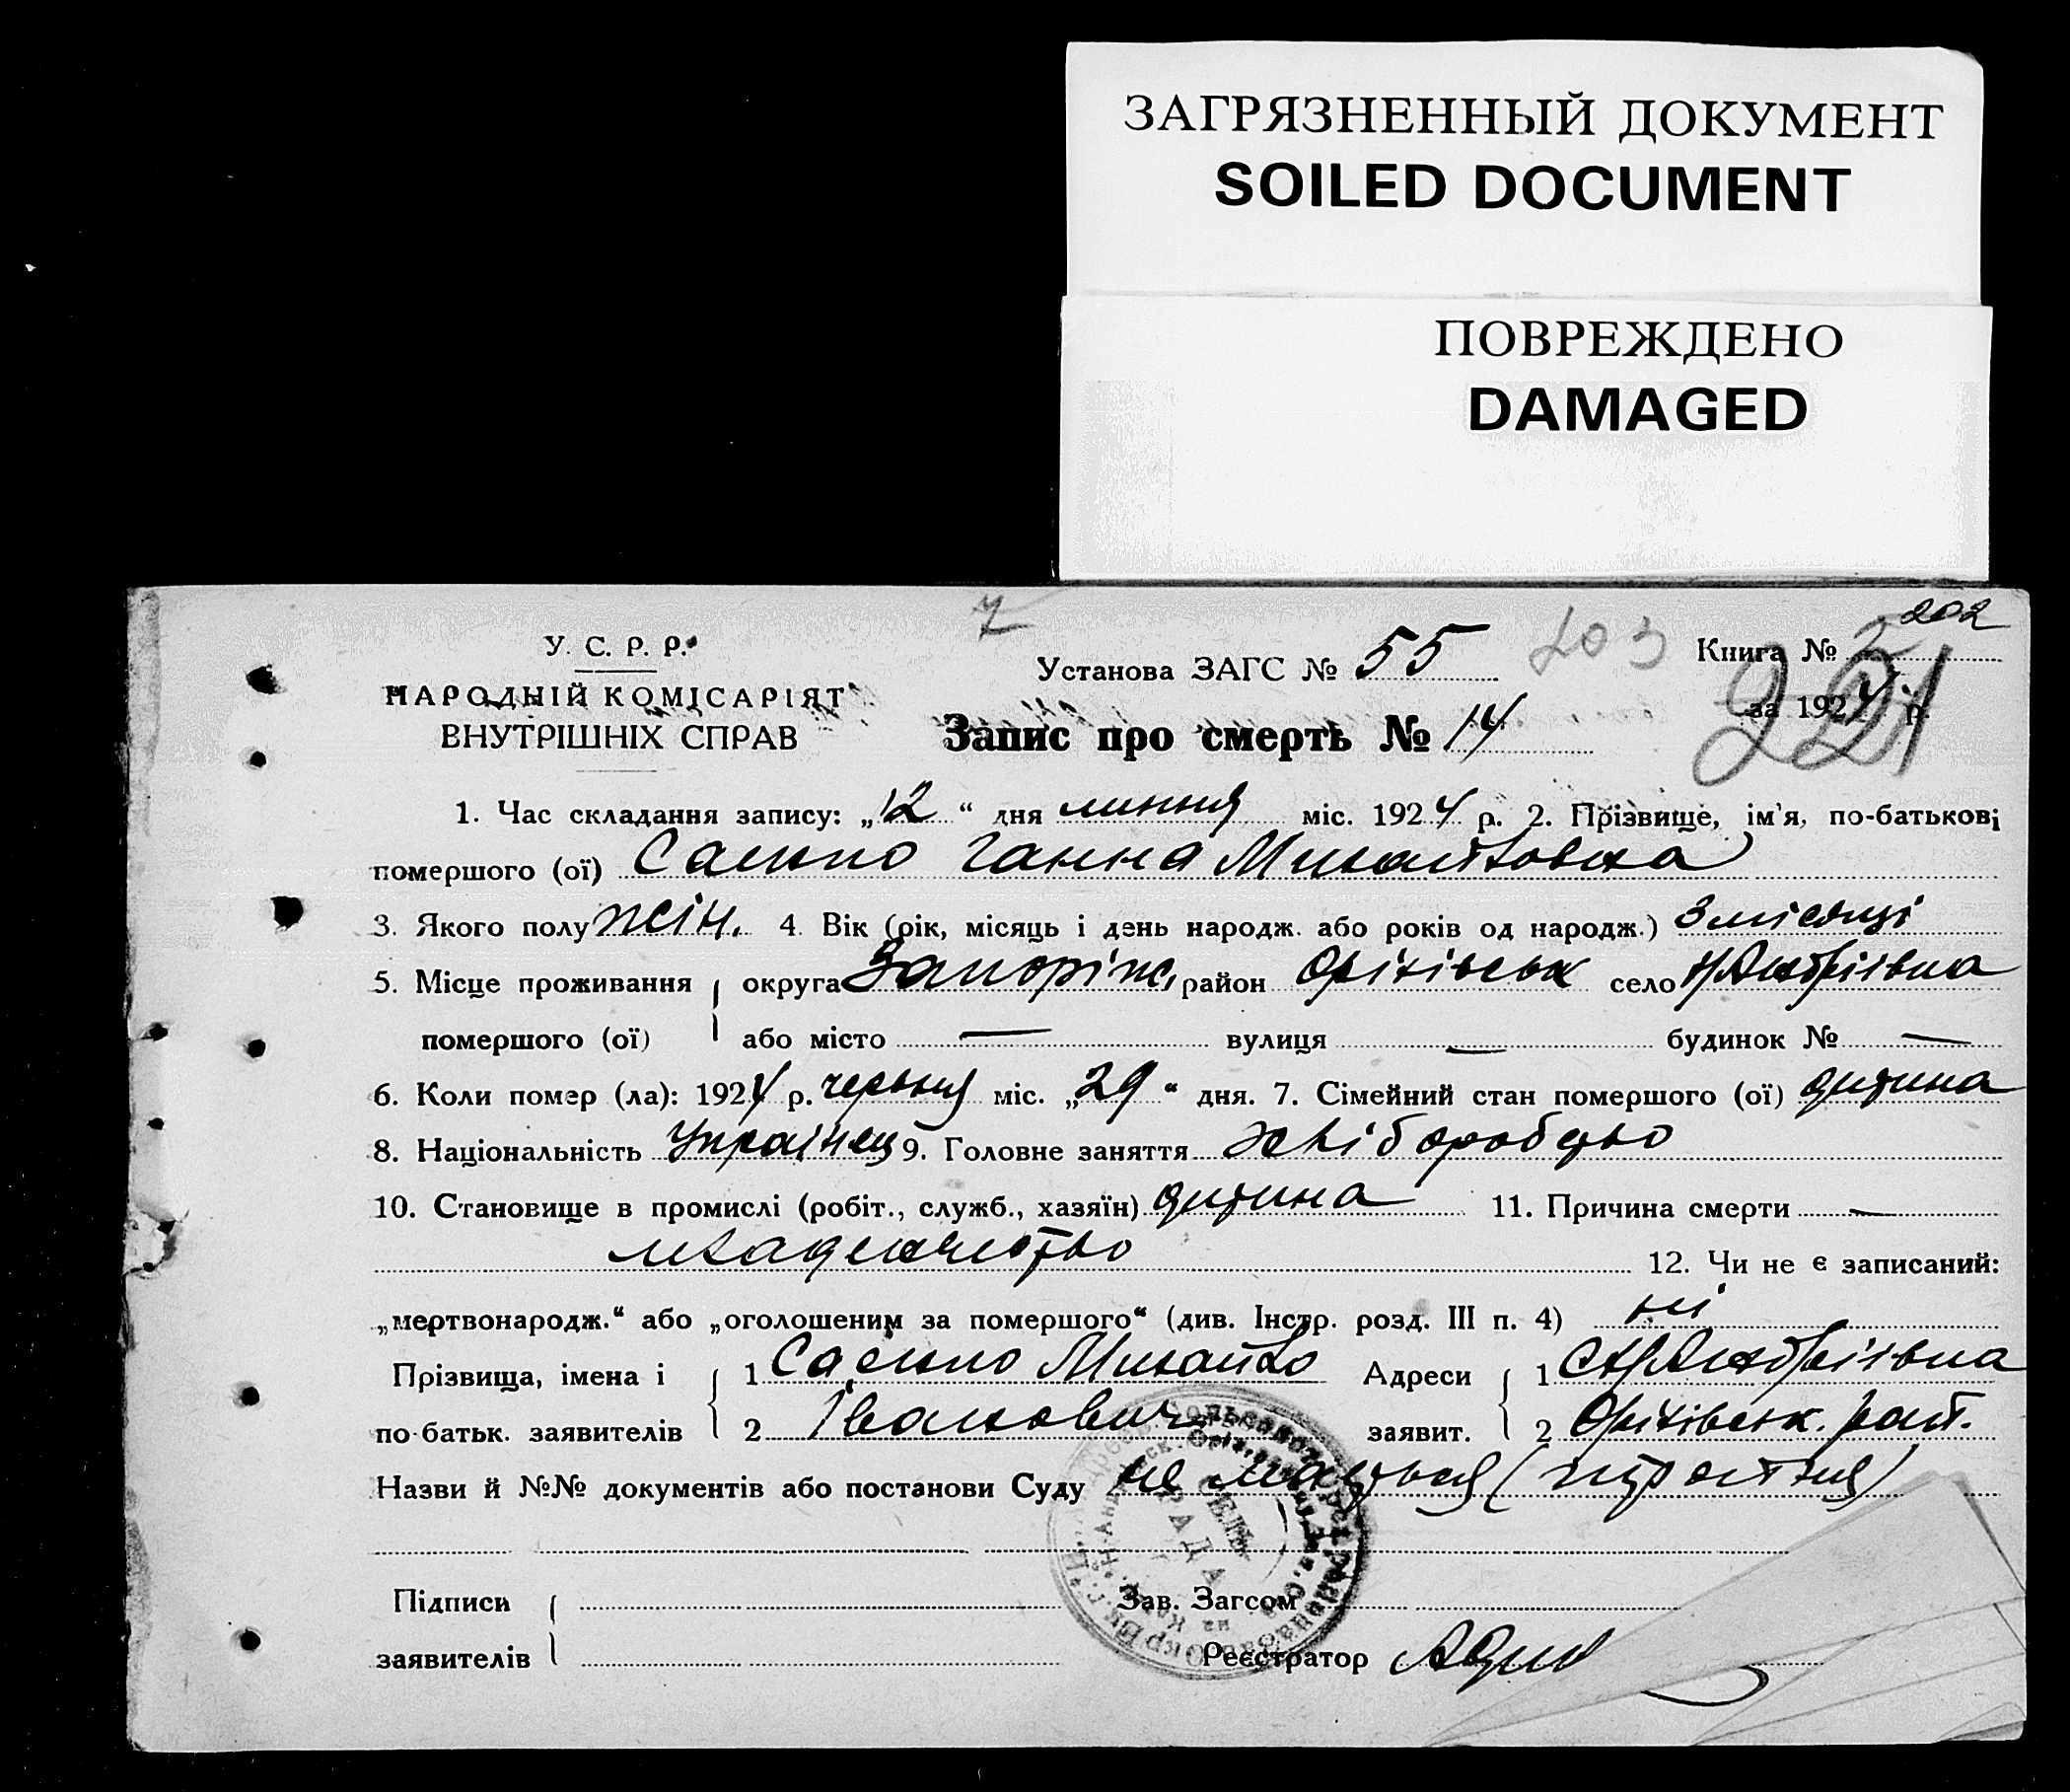 ЗАГРЯЗНЕННЫЙ ДОКУМЕНТ
SOILED DOCUMENT
ПОВРЕЖДЕНО
DAMAGED
202
У. С. Р. Р.
НАРОДНІЙ КОМІСАРІЯТ
ВНУТРІШНІХ СПРАВ
Установа ЗАГС № 55 203 Книга № 2
221
за 1924 р.
Запис про смерть № 14
1. Час складання запису: „12“ дня липня міс. 1924 р. 2. Прізвище, ім'я, по-батькові
помершого (ої) Саенко Ганна Михайловна
3. Якого полу жін. 4. Вік (рік, місяць і день народж. або років од народж.) 3 місяці
5. Місце проживання округа Запоріж. район Оріхівськ село Н Андріівка
помершого (ої) або місто — вулиця — будинок № —
6. Коли помер (ла): 1924 р. червня міс. „29“ дня. 7. Сімейний стан помершого (ої) дитина
8. Національність Українец 9. Головне заняття хліборобство
10. Становище в промислі (робіт., служб., хазяїн) дитина 11. Причина смерти —
младенчество 12. Чи не є записаний:
„мертвонародж.“ або „оголошеним за помершого“ (див. Інстр. розд. III п. 4) ні
Прізвища, імена і 1 Саенко Михайло Адреси 1 с Н Андріівка
по-батьк. заявителів 2 Іванович заявит. 2 Оріхівськ. рай.
Назви й №№ документів або постанови Суду не
Підписи
заявителів
Зав. Загсом
Реєстратор
СЕЛЬ
РАДА